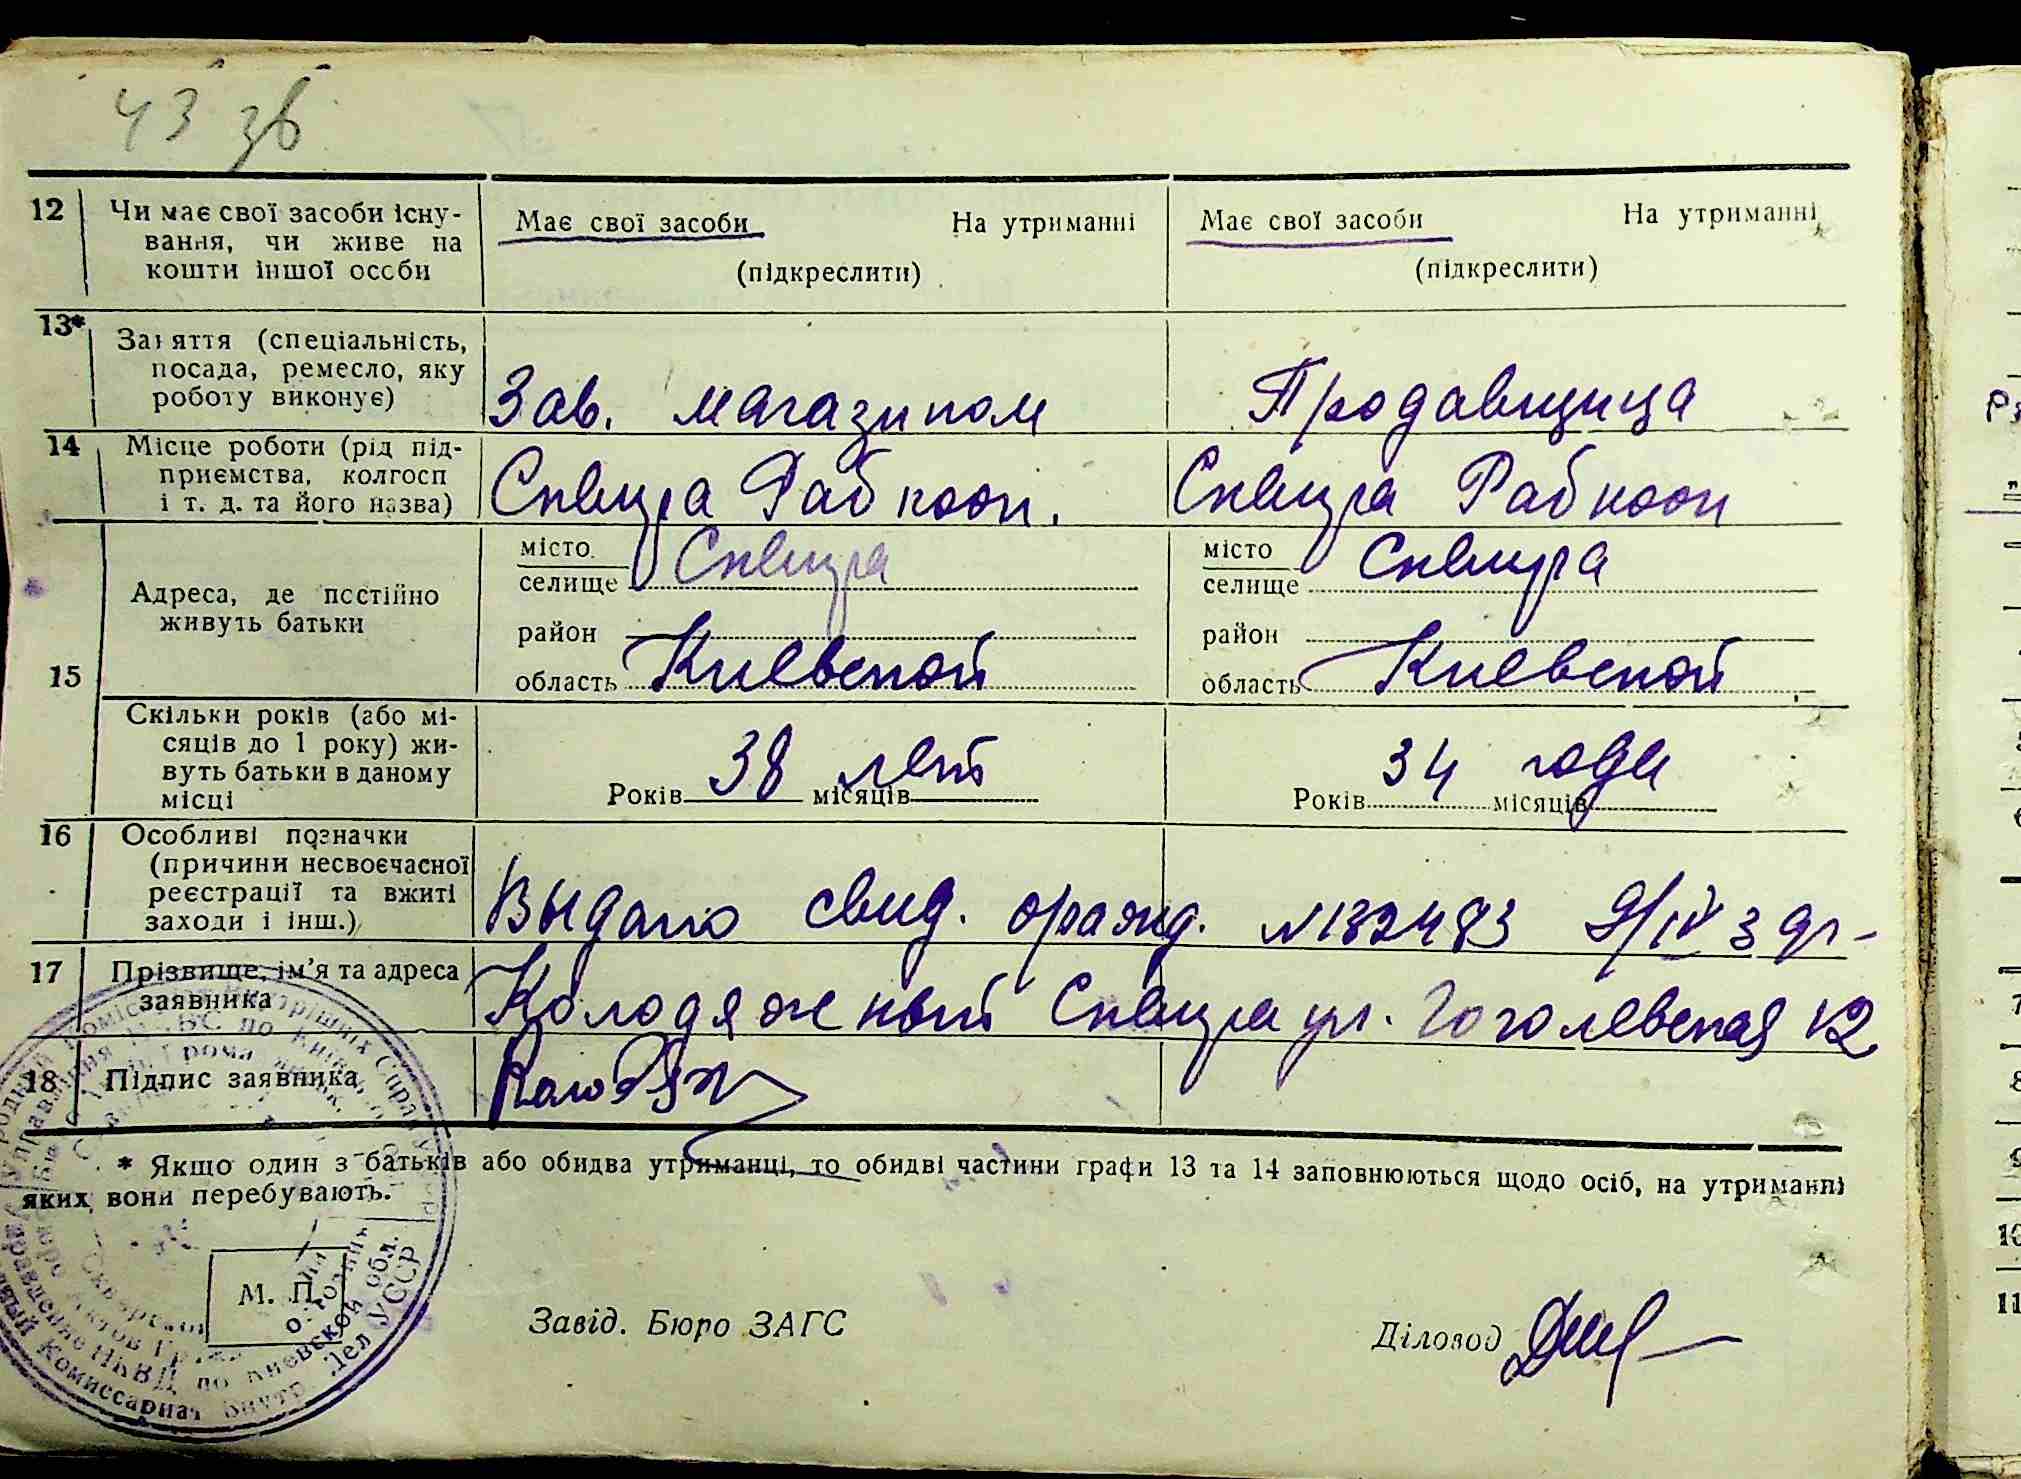 43 зв
12 Чи має свої засоби існу-
вання, чи живе на
кошти іншої особи
Має свої засоби На утриманні
(підкреслити)
Має свої засоби На утриманні
(підкреслити)
13* Заняття (спеціальність,
посада, ремесло, яку
роботу виконує)
Зав. магазином
Продавщица
14 Місце роботи (рід під-
приємства, колгосп
і т. д. та його назва)
Сквира Рабкооп.
Сквира Рабкооп
15 Адреса, де постійно
живуть батьки
місто Сквира
селище
район
область Киевской
місто Сквира
селище
район
область Киевской
Скільки років (або мі-
сяців до 1 року) жи-
вуть батьки в даному
місці
Років 38 місяців лет
Років 34 місяців года
16 Особливі позначки
(причини несвоєчасної
реєстрації та вжиті
заходи і інш.)
Выдано свид. о ражд. №132483 9/IV 39г-
17 Прізвище, ім'я та адреса
заявника
Колодяжный Сквира ул. Гоголевская 12
18 Підпис заявника
Колодяж
* Якщо один з батьків або обидва утриманці, то обидві частини графи 13 та 14 заповнюються щодо осіб, на утриманні
яких вони перебувають.
М. П.
Завід. Бюро ЗАГС
Діловод